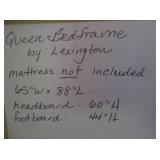 Queen Bedframe
by: Lexington
mattress not included
65"W x 88"L
headboard: 60"H
footboard: 44"H